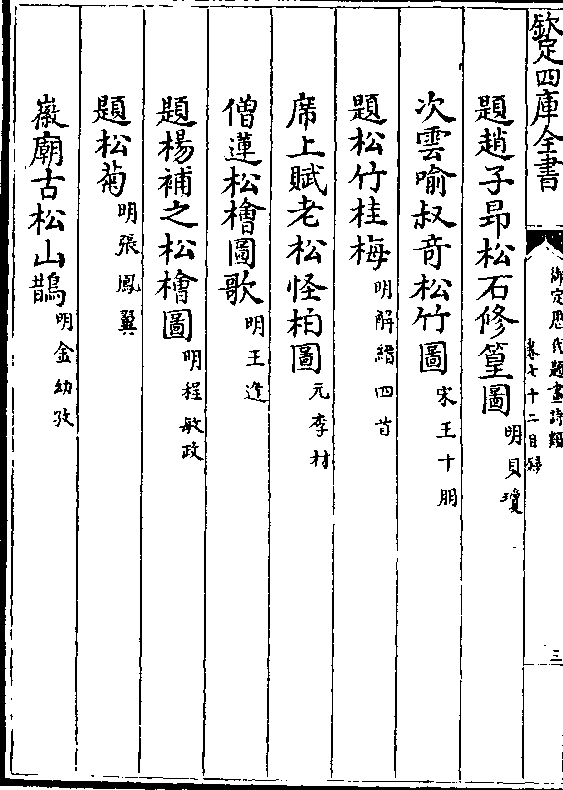 欽定四庫全書
御定歷代題畫詩類
卷七十二目錄
三
題趙子昂松石修篁圖 明貝瓊
次雲喻叔奇松竹圖 宋王十朋
題松竹桂梅 明解縉四首
席上賦老松怪柏圖 元李材
僧蓮松檜圖歌 明王逢
題楊補之松檜圖 明程敏政
題松菊 明張鳳翼
徽廟古松山鵲 明金幼孜